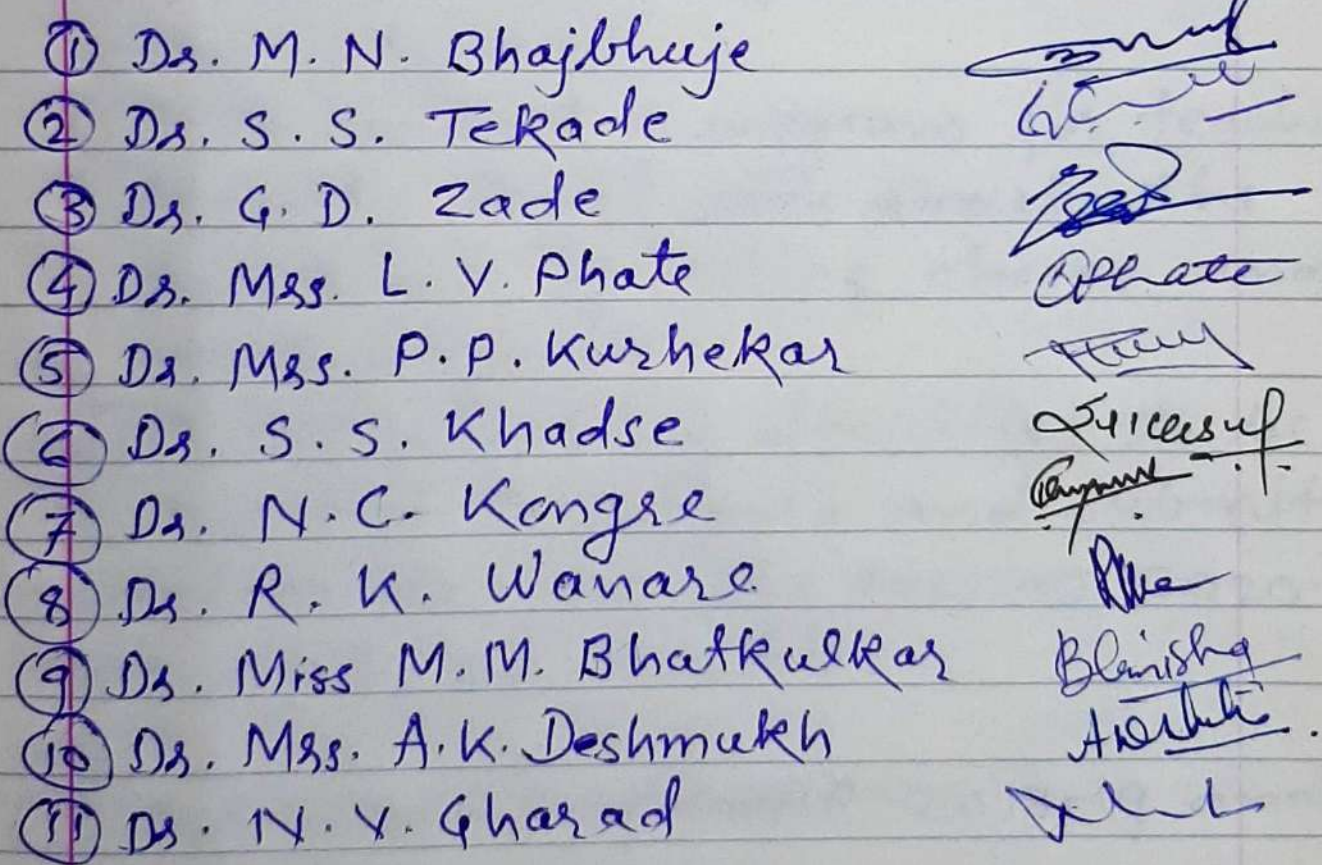 ① Dr. M. N. Bhajbhuje
② Dr. S. S. Tekade
③ Dr. G. D. Zade
④ Dr. Mrs. L. V. Phate
⑤ Dr. Mrs. P. P. Kurhekar
⑥ Dr. S. S. Khadse
⑦ Dr. N. C. Kongre
⑧ Dr. R. K. Wanare
⑨ Dr. Miss M. M. Bhatkulkar
⑩ Dr. Mrs. A. K. Deshmukh
⑪ Dr. N. V. Gharad